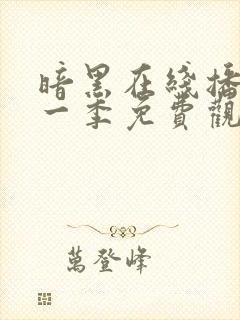 暗黑在綫播
一季免費觀
萬登峰